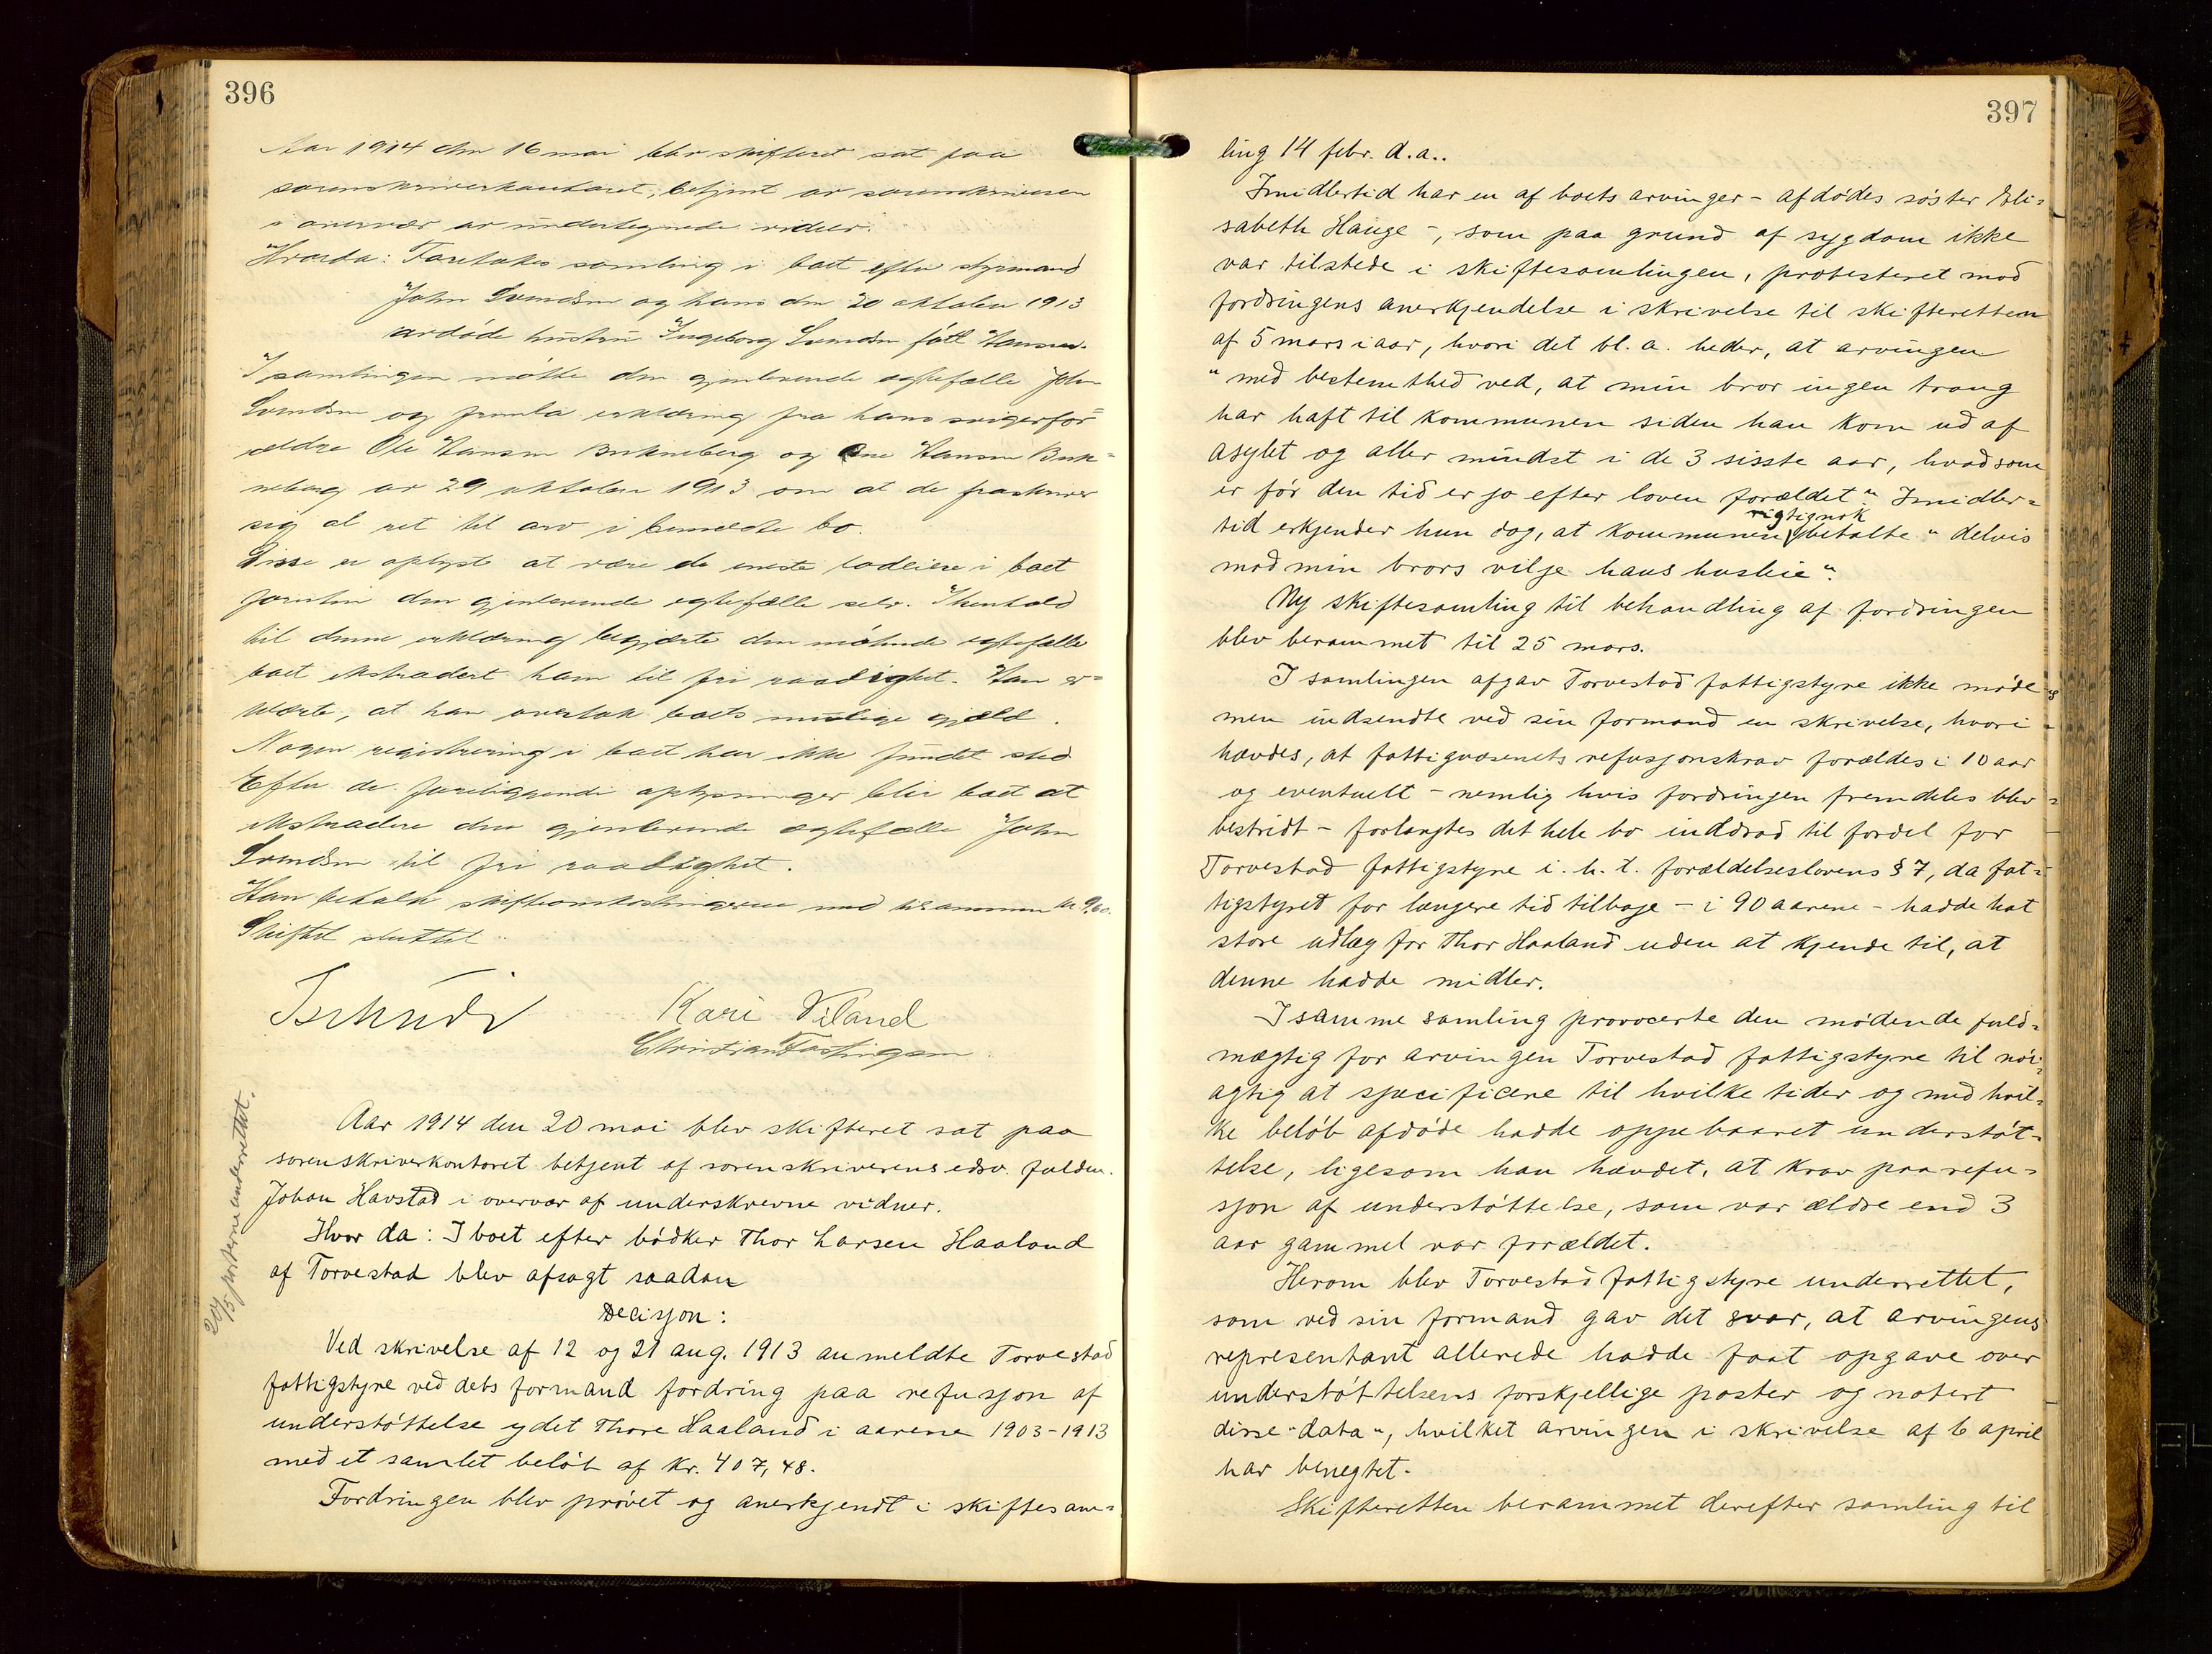 396
Aar 1914 den 16 mai blev skifteret sat paa
sorenskriverkontoret, betjent av sorenskriveren
i overvær av undertegnede vidner.
Hvorda: Foretokes samling i boet efter styrmand
John Svendsen og hans den 20 oktober 1913
avdøde hustru Ingeborg Svendsen født Hansen.
I samlingen møtte den gjenlevende egtefælle John
Svendsen og fremla erklæring fra hans svigerfor=
ældre Ole Hansen Bukneberg og Ane Hansen Buk=
neberg av 29 oktober 1913 om at de fraskriver
sig al ret til arv i bemeldte bo.
Disse er oplyst at være de eneste lodeiere i boet
foruten den gjenlevende egtefælle selv. I henhold
til denne erklæring begjærte den møtende egtefælle
boet ekstradert ham til fri raadighet. Han er=
klærte, at han overtok boets mulige gjæld.
Nogen registrering i boet har ikke fundet sted
Efter de foreliggende oplysninger blir boet at
ekstradere den gjenlevende ægtefælle John
Svendsen til fri raadighet.
Han betalte skifteomkostningerne med tilsammen kr 9,60.
Skiftet sluttet
Tschudi Kari Viland
Christian Fastingsen
20/5 parterne underrettet.
Aar 1914 den 20 mai blev skifteret sat paa
sorenskriverkontoret betjent af sorenskriverens edsv. fuldm.
Johan Havstad i overvær af underskrevne vidner.
Hvor da: I boet efter bødker Thor Larsen Haaland
af Torvestad blev afsagt saadan
Decisjon:
Ved skrivelse af 12 og 21 aug. 1913 anmeldte Torvestad
fattigstyre ved dets formand fordring paa refusjon af
understøttelse ydet Thore Haaland i aarene 1903-1913
med et samlet beløb af kr. 407,48.
Fordringen blev prøvet og anerkjendt i skiftesam=
397
ling 14 febr. d.a..
Imidlertid har en af boets arvinger - afdødes søster Eli=
sabeth Hauge -, som paa grund af sygdom ikke
var tilstede i skiftesamlingen, protesteret mod
fordringens anerkjendelse i skrivelse til skifteretten
af 5 mars iaar, hvori det bl. a. heder, at arvingen
"med bestemthed ved, at min bror ingen trang
har haft til kommunen siden han kom ud af
asylet og aller mindst i de 3 sisste aar, hvad som
er før den tid er jo efter loven forældet" Imidler=
tid erkjender hun dog, at kommunen rigtignok betalte "delvis
mod min brors vilje hans husleie".
Ny skiftesamling til behandling af fordringen
blev berammet til 25 mars.
I samlingen afgav Torvestad fattigstyre ikke møde
men indsendte ved sin formand en skrivelse, hvori
hævdes, at fattigvæsenets refusjonskrav forældes i 10 aar
og eventuelt - nemlig hvis fordringen fremdeles blev
bestridt - forlangtes det hele bo inddrad til fordel for
Torvestad fattigstyre i. h. t. forældelseslovens § 7, da fat=
tigstyret for længere tid tilbage - i 90 aarene - hadde hat
store udlæg for Thor Haaland uden at kjende til, at
denne hadde midler.
I samme samling provocerte den mødende fuld=
mægtig for arvingen Torvestad fattigstyre til nøi=
agtig at specificere til hvilke tider og med hvil=
ke beløb afdøde hadde oppebaaret understøt=
telse, ligesom han hævdet, at krav paa refu=
sjon af understøttelse, som var ældre end 3
aar gammel var forældet.
Herom blev Torvestad fattigstyre underrettet,
som ved sin formand gav det svar, at arvingens
representant allerede hadde faat opgave over
understøttelsens forskjellige poster og notert
disse "data", hvilket arvingen i skrivelse af 6 april
har benegtet.
Skifteretten berammet derefter samling til